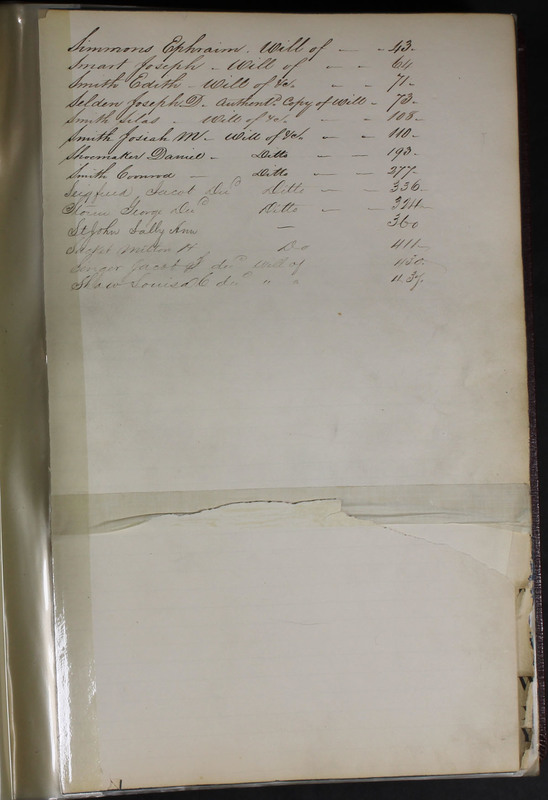 Simmons Ephraim. Will of — - 43-
Smart Joseph - Will of - - 64
Smith Edith - Will of &c. - - 71-
Selden Joseph D. Authentc. Copy of Will - 73-
Smith Silas - Will of &c. - - 108-
Smith Josiah M - Will of &c. - - 110-
Shoemaker Daniel - Ditto - - 193-
Smith Conrod - Ditto - - 277-
Jacob Decd Ditto - - 336-
George Decd Ditto - - 324-
St John Sally Ann - 360
Milton H Do 411-
Jacob decd Will of 430-
Shaw Louisa C decd " " 437-